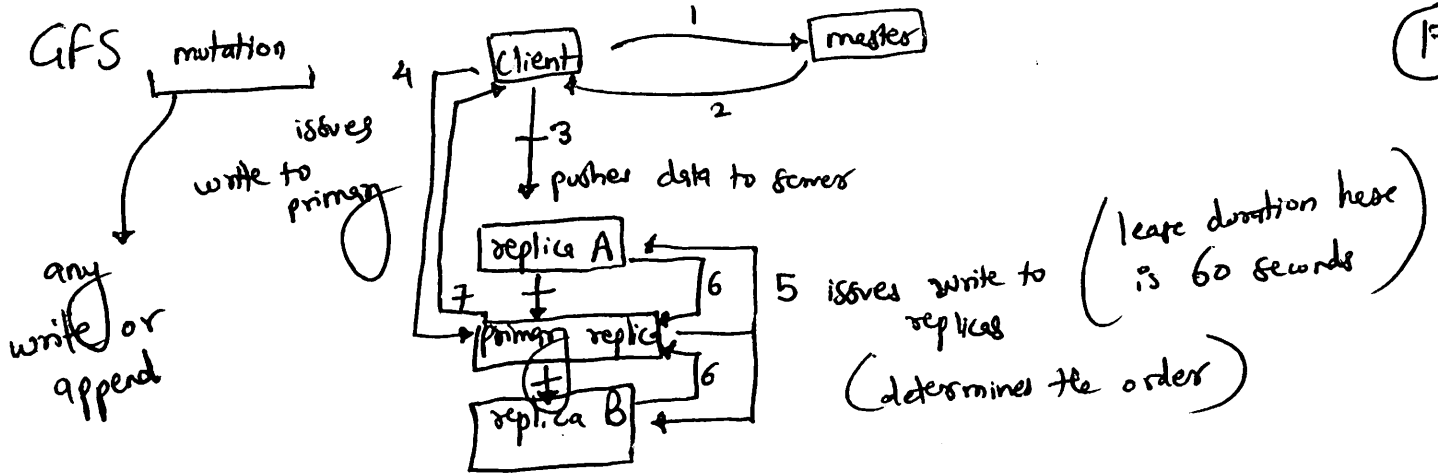 GFS mutation
any
write or
append
issues
write to
primary
4
client
1
master
2
3
pushes data to server
replica A
primary replica
replica B
7
6
6
5 issues write to
replicas
(determines the order)
(lease duration here
is 60 seconds)